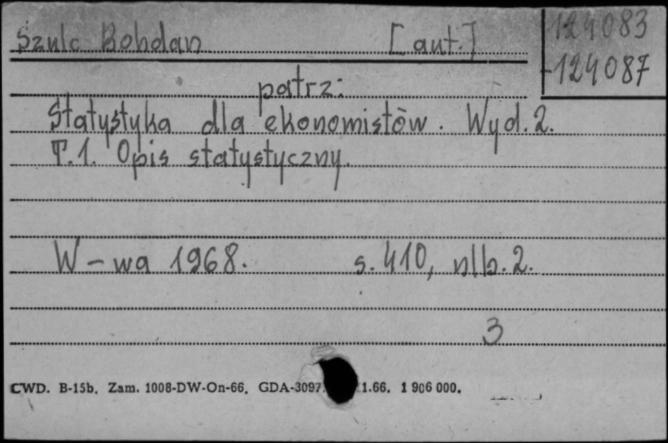 Szulc Bohdan [aut.]
124083
-124087
patrz:
Statystyka dla ekonomistów. Wyd. 2.
T.1. Opis statystyczny.
W-wa 1968. s. 410, nlb. 2.
3
CWD. B-15b. Zam. 1008-DW-On-66. GDA-3097 1.66. 1 906 000.